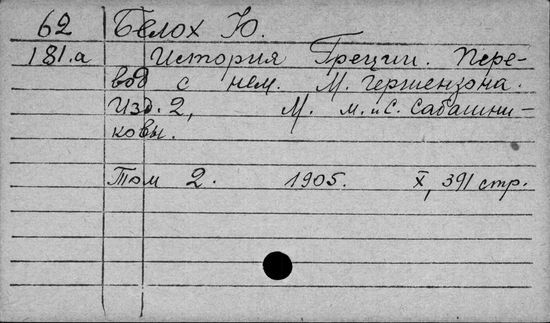 62 Белох Ю.
181.а История Греции. Пере-
вод с нем. М. Гершензона.
Изд. 2, М. М. и С. Сабашни-
ковы.
Том 2. 1905. X, 391 стр.